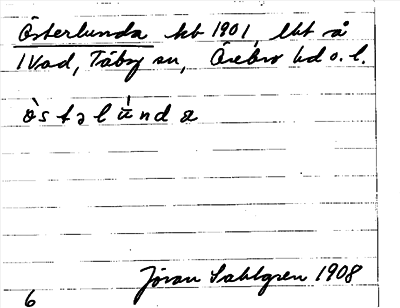 Österlunda kt 1901, lht å
1 Vad, Täby sn, Örebro hd o. l.
ö̀stəlúnda
Jöran Sahlgren 1908
6